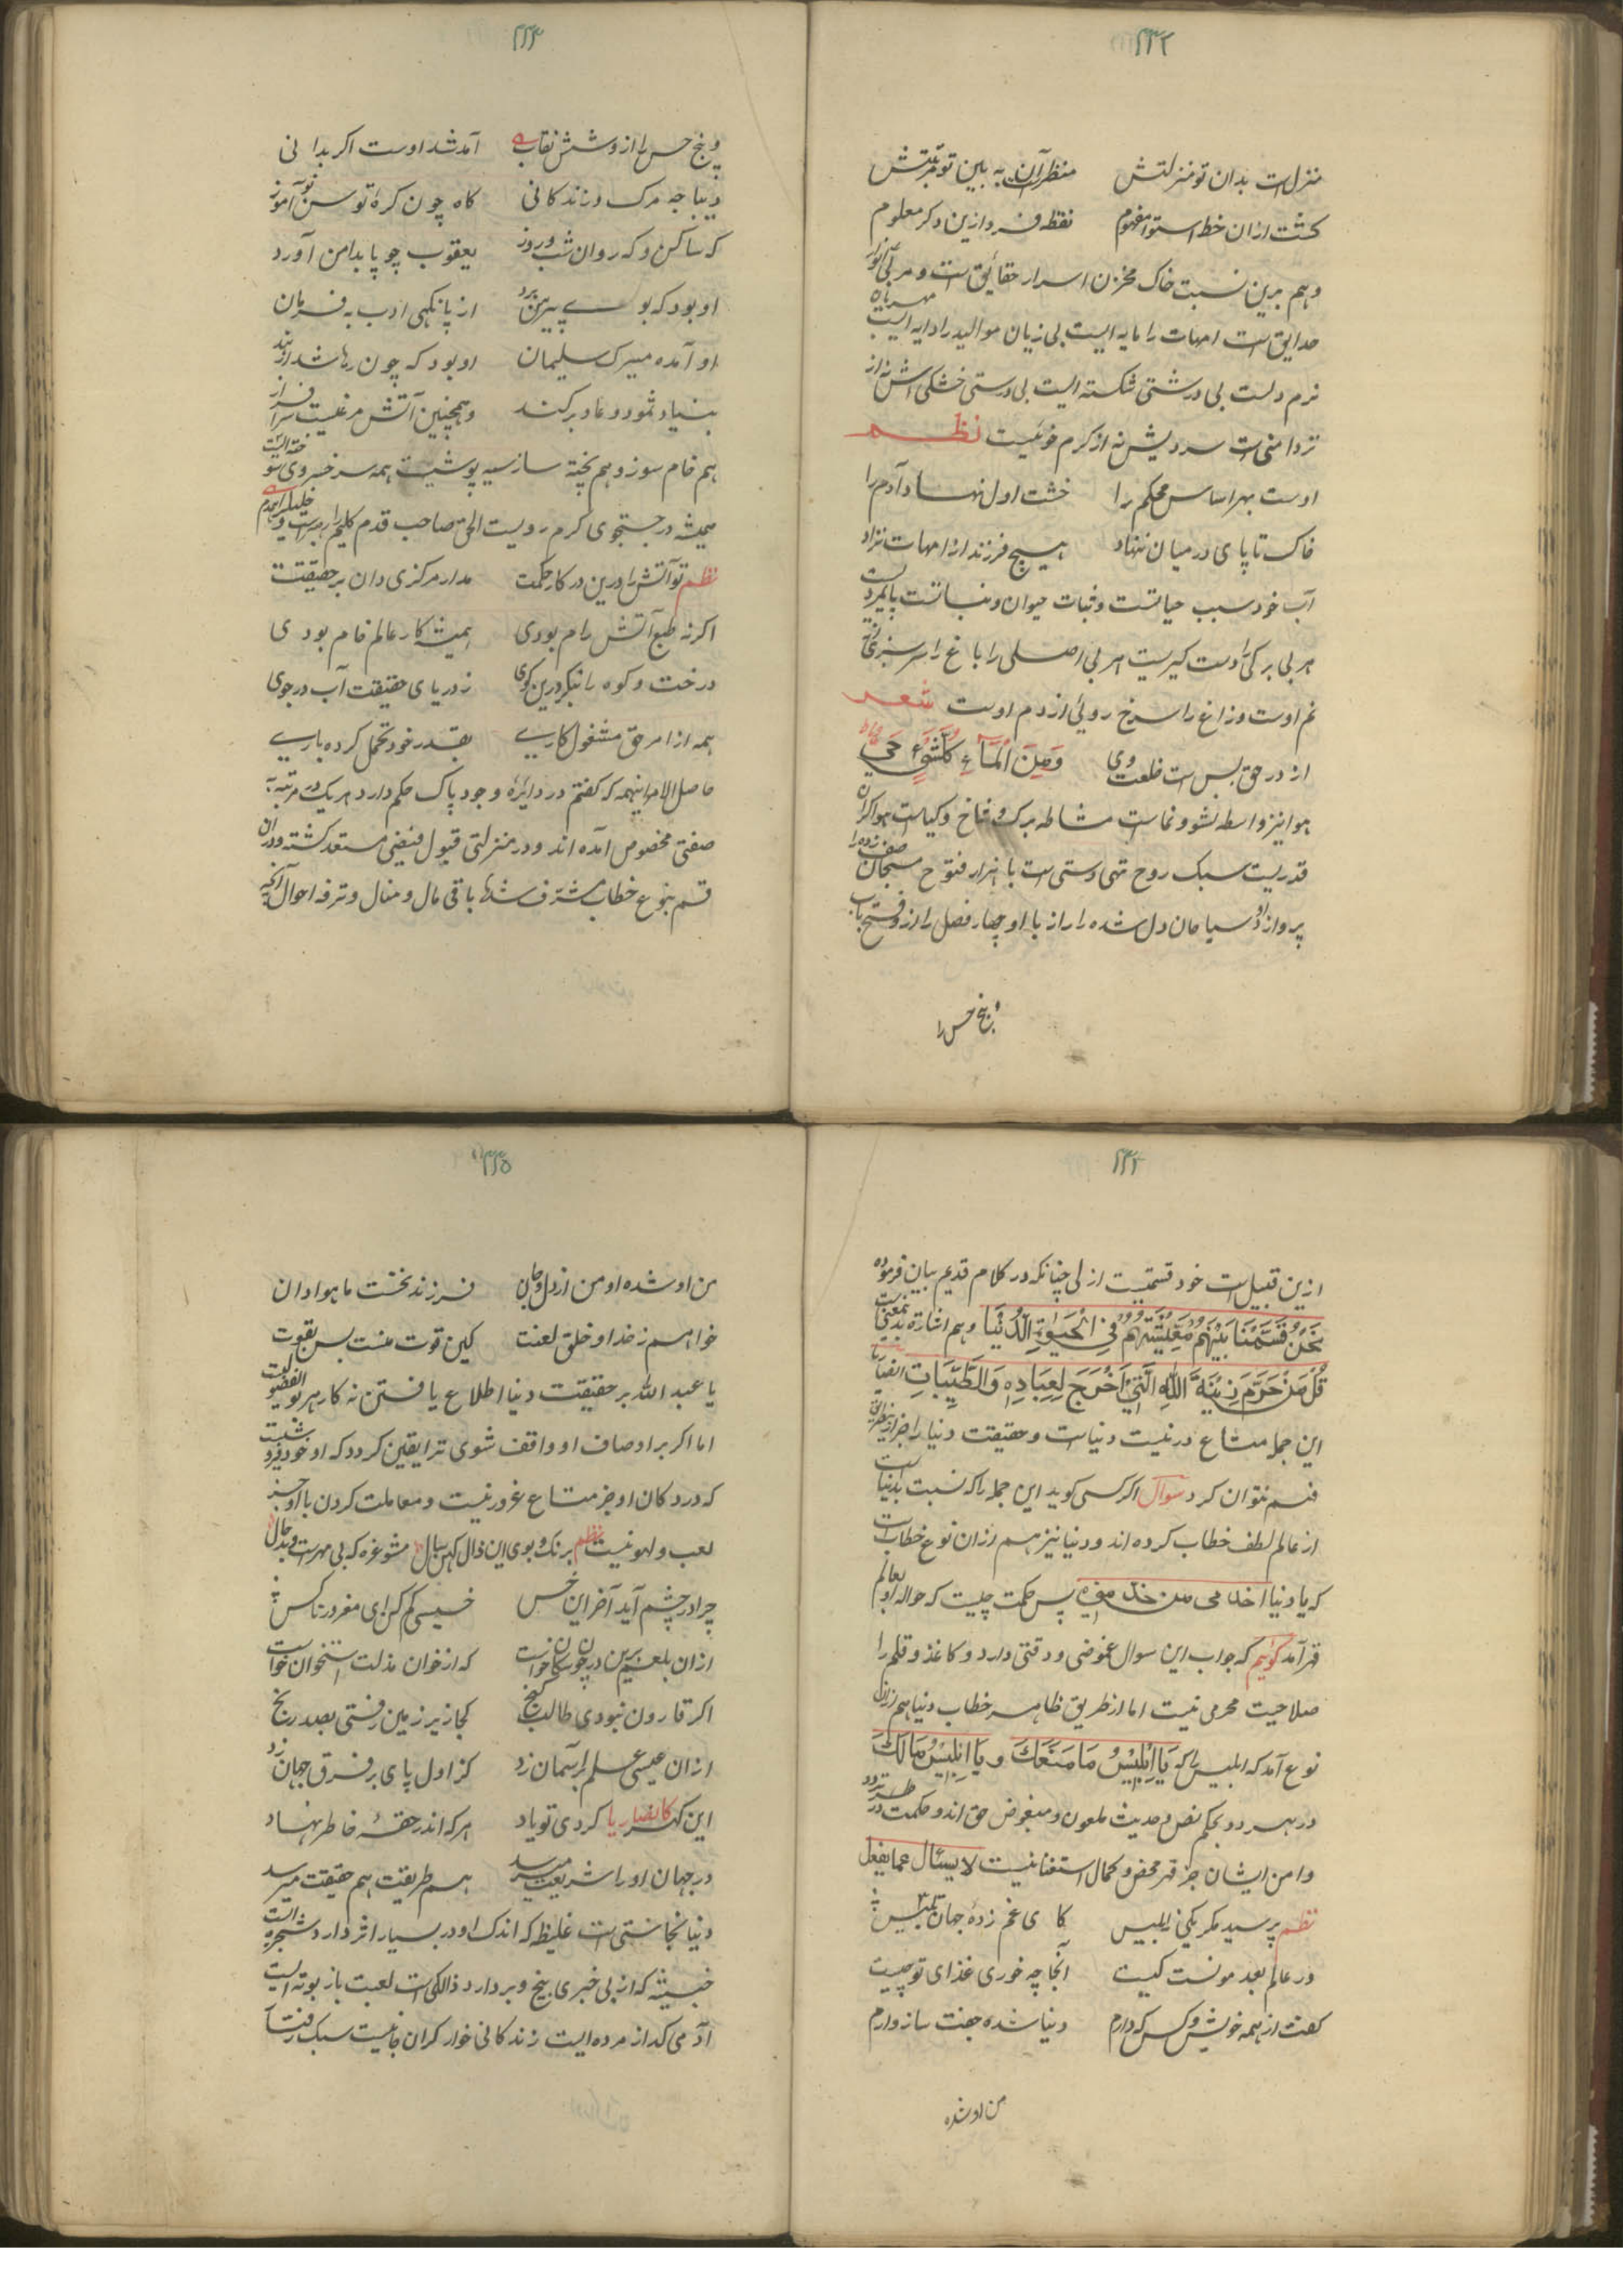 ۲۳۲
منزلست بدان تو منزلتش منظر آن به بین تو مرتبتش
کشت ازان خط استوا مفهوم نقطه فرد ازین دکر معلوم
وهم برین نسبت خاک مخزن اسرار حقائق است و مربی انوار
حدایق است امهات را مایه ایست بی زیان موالید را دایه ایست مهربان
نرم دلست بی درشتی شکسته ایست بی درستی خشکی اش نه از
تردامنی است سردیش نه از کرم خوئیست نظم
اوست بهر اساس محکم را خشت اول نهاد آدم را
خاک تا پای در میان ننهاد هیچ فرزند از امهات نزاد
آب خود سبب حیاتست و ثبات حیوان و نباتست پایمردیست
هر بی برکی را دست کیریست هر بی اصلی را باغ را سرسبزی از
نم اوست و زاغ را سرخ روئی از دم اوست شعر
از در حق بس است خلعت وی وَمِنَ الْمَآءِ کُلُّ شَیْءٍ حَیّ
هوا نیز واسطه نشو و نماست مشاطه برک و شاخ و کیاست هوا کران
قدریست سبک روح تهی دستی است با هزار فتوح مسبحان صف زده را
پرواز ازو سیاحان دل شده را راز با او چهار فصل را ازو فتح باب
و پنج حس را
۲۳۳
و پنج حس را ازو شش نقاب آمد شد اوست اکر بدانی
دیباجه مرک و زندکانی کاه چون کره تو سن نو آموز
که ساکن و که روان شب و روز یعقوب چو پا بدامن آورد
او بود که بوی پیرهن برد از پا نکهی ادب به فرمان
او آمده میرک سلیمان او بود که چون رها شد از بند
بنیاد ثمود و عاد برکند و همچنین آتش مرغیست سرافراز
هم خام سوز و هم پخته ساز سیه پوشیست همه سر خسروی تنو خفته ایست
همیشه در جستجوی کرم رویست الحق صاحب قدم کلیم را رهبرست و خلیل را همدم
نظم تو آتش را درین درکار حکمت مدار مرکزی دان بر حقیقت
اکر نه طبع آتش رام بودی همیشه کار عالم خام بودی
درخت و کوه را بنکر درین کوی ز دریای حقیقت آب در جوی
همه از امر حق مشغول کاری بقدر خود تحمل کرده باری
حاصل الامر اینهمه که کفتم در دایرهٔ وجود پاک حکم دارد هر یک در مرتبهٔ
صفتی مخصوص آمده اند و در منزلتی قبول فیضی مستعد کشته و دران
قسم بنوع خطاب مشرف شد اما باقی مال و منال و ترفه احوال آنکه
۲۳۴
ازین قبیل است خود قسمتیست ازلی چنانکه در کلام قدیم بیان فرموده
نَحْنُ قَسَمْنَا بَیْنَهُمْ مَعِیْشَتَهُمْ فِی الْحَیٰوةِ الدُّنْیَا وهم اشاره بدین معنیست
قُلْ مَنْ حَرَّمَ زِیْنَةَ اللّٰهِ الَّتِیْ اَخْرَجَ لِعِبَادِهٖ وَالطَّیِّبَاتِ
این جمله متاع در نیست دنیاست و حقیقت دنیا را جز از نظر
فهم نتوان کرد سوال اکر کسی کوید این جمله را که نسبت بدنیاست
از عالم لطف خطاب کرده اند و دنیا نیز هم ازان نوع خطاب است
که یا دنیا اخدمی من خدمنی پس حکمت چیست که حواله او بعالم
قهر آمد کوئیم که جواب این سوال غموضی و دقتی دارد و کاغذ و قلم را
صلاحیت محرمی نیست اما از طریق ظاهر خطاب دنیا هم ازان
نوع آمد که ابلیس را که یَا اِبْلِیْسُ مَا مَنَعَکَ و یَا اِبْلِیْسُ مَالَکَ
در هر دو بحکم نص و حدیث ملعون و مبغوض حق اند و حکمت در طرد
و امن ایشان جز قهر محض و کمال استغنا نیست لا یسئال عما یفعل
نظم پرسید مکر یکی ز ابلیس کای غم زدهٔ جهان تلبیس
در عالم بعد مونست کیست آنجا چه خوری غذای تو چیست
کفت از همه خویش و کس که دارم دنیا شده جفت سازوارم
من او شده
۲۳۵
من او شده او من از دل و جان فرزند نخست ما هوا دان
خواهم ز خدا و خلق لعنت کین قوت منست بس بقوت
یا عبد الله بر حقیقت دنیا اطلاع یافتن نه کار هر بو الفضولیست
اما اکر بر اوصاف او واقف شوی ترا یقین کردد که او خود فروشیست
که در دکان او جز متاع غرور نیست و معاملت کردن با او جز
لعب و لهو نیست نظم برنک و بوی این زال کهن سال مشو غره که بی مهرست و بدحال
چرا در چشم آید آخر این خس خسیسی کم کن ای مغرور ناکس
ازان بلعم برین در چون سکان خواست که از خوان مذلت استخوان خواست
اکر قارون نبودی طالب کنج کجا زیر زمین رفتی بصد رنج
ازان عیسی علم بر آسمان زد کز اول پای بر فرق جهان زد
این کهر کانصاریا کردی تو یاد هر که اندر حقهٔ خاطر نهاد
در جهان او را شریعت میرسد هم طریقت هم حقیقت میرسد
دنیا نجاستی است غلیظ که اندک او در بسیار اثر دارد شجره ایست
خبیثه که از بی خبری بیخ و بر دارد زالکی است لعبت باز بوته ایست
آدمی کداز مرده ایست زندکانی خوار کران جانیست سبک رفتار